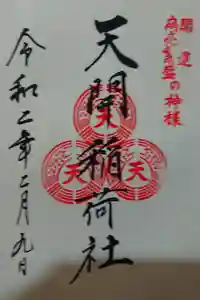 開運
の神様
天開稲荷社
天
天
天
令和二年二月九日